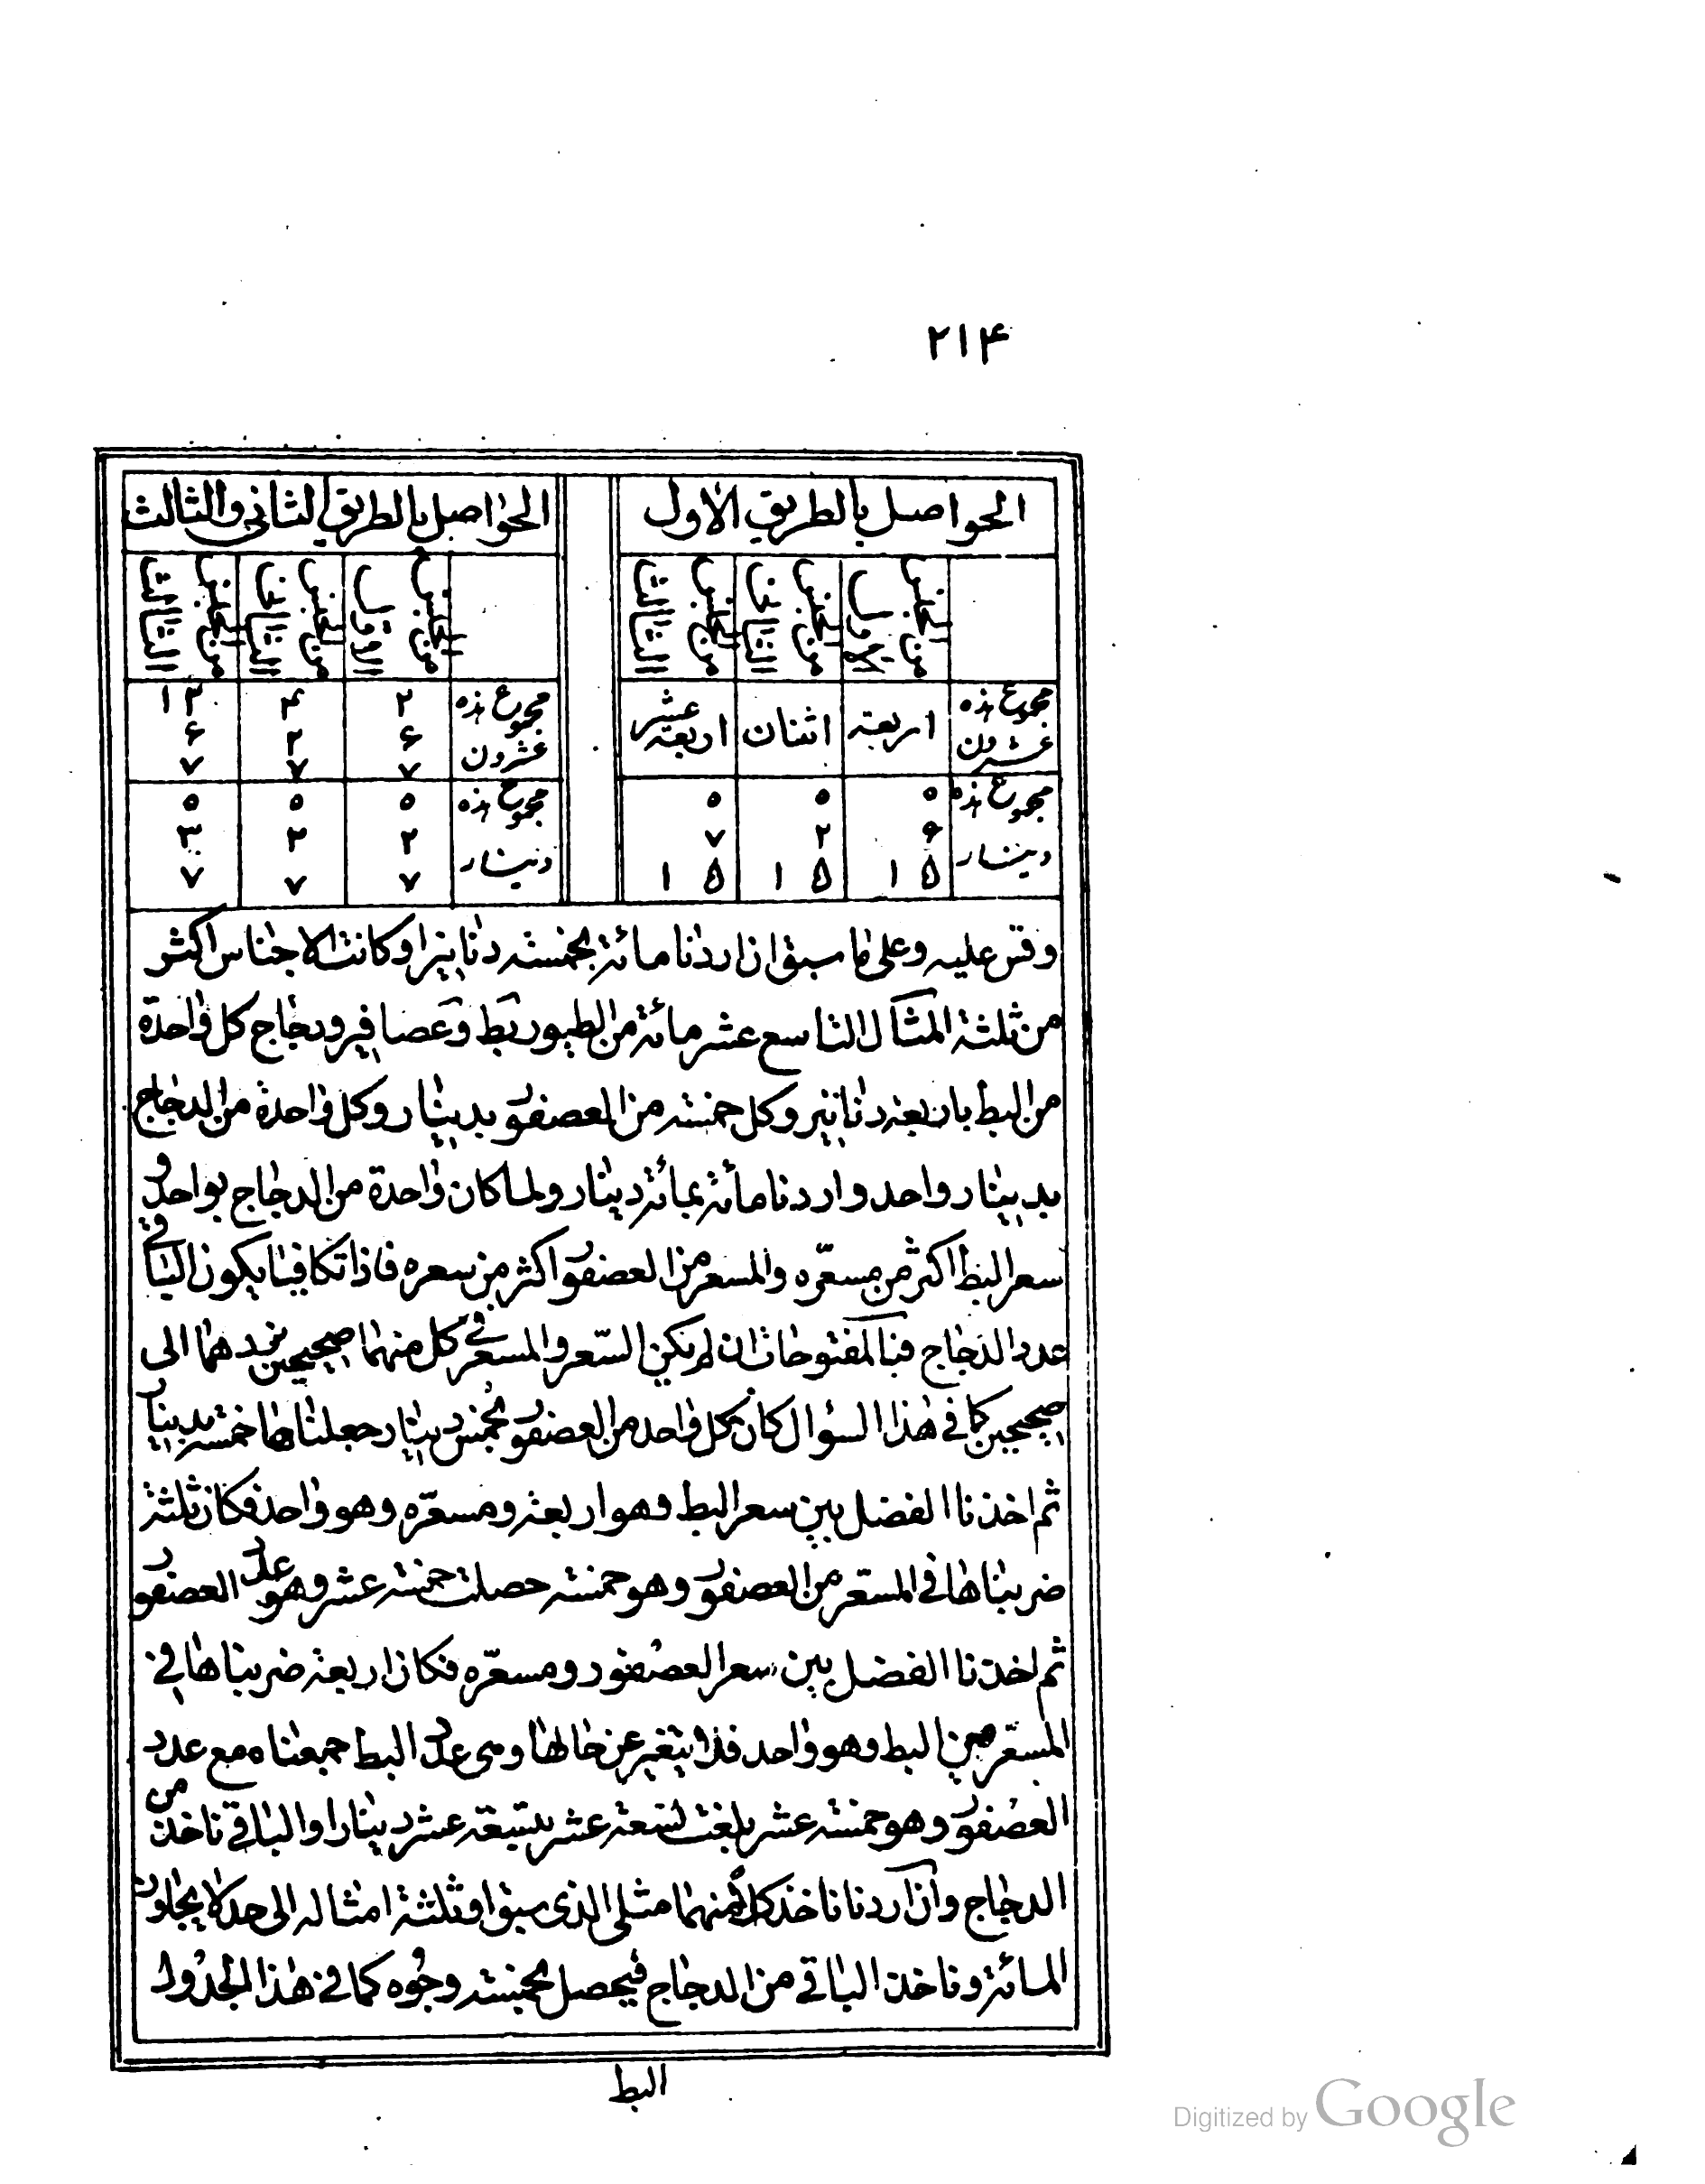 ٢١۴
الحواصل بالطريق الاول
الحواصل بالطريق الثانى والثالث
من الجنس الاول
من الجنس الثانى
من الجنس الثالث
من الجنس الاول
من الجنس الثانى
من الجنس الثالث
مجموع هذه عشرون
اربعة
اثنان
اربعة عشر
مجموع هذه عشرون
٢ ۶ ٧
۴ ٢ ٧
١٣ ۶ ٧
مجموع هذه دينار
٥ ۶ ١٥
٥ ٢ ١٥
٥ ٧ ١٥
مجموع هذه دينار
٥ ٢ ٧
٥ ٢ ٧
٥ ٣ ٧
وقس عليه وعلى ما سبق ان اردنا مائة بخمسة دنانير او كانت الاجناس اكثر
من ثلثة المثال التاسع عشر مائة من الطيور بط وعصافير ودجاج كل واحدة
من البط باربعة دنانير وكل خمسة من العصفور بدينار وكل واحدة من الدجاج
بدينار واحد واردنا مائة بمائة دينار ولما كان واحدة من الدجاج بواحد و
سعر البط اكثر من مسعّره والمسعر من العصفور اكثر من سعره فاذا تكافيا يكون الباقى
عدد الدجاج فبالمفتوحات ان لم يكن السّعر والمسعر فى كل منهما صحيحين نردهما الى
صحيحين كما فى هذا السؤال كان كل واحد من العصفور بخمس دينار جعلناها خمسة بدينار
ثم اخذنا الفضل بين سعر البط وهو اربعة ومسعّره وهو واحد فكان ثلثة
ضربناها فى المسعّر من العصفور وهو خمسة حصلت خمسة عشر وهو عدد العصفور
ثم اخذنا الفضل بين سعر العصفور ومسعّره فكان اربعة ضربناها فى
المسعّر من البط وهو واحد فلا يتغير عن حالها وهى عدد البط جمعناه مع عدد
العصفور وهو خمسة عشر بلغت تسعة عشر بتسعة عشر دينارا والباقى ناخذ من
الدجاج وان اردنا ناخذ كلا منهما مثلى الذى سبق او ثلثة امثاله الى حد لا يجاوز
المائة وناخذ الباقى من الدجاج فيحصل بخمسة وجوه كما فى هذا الجدول
البط
Digitized by Google